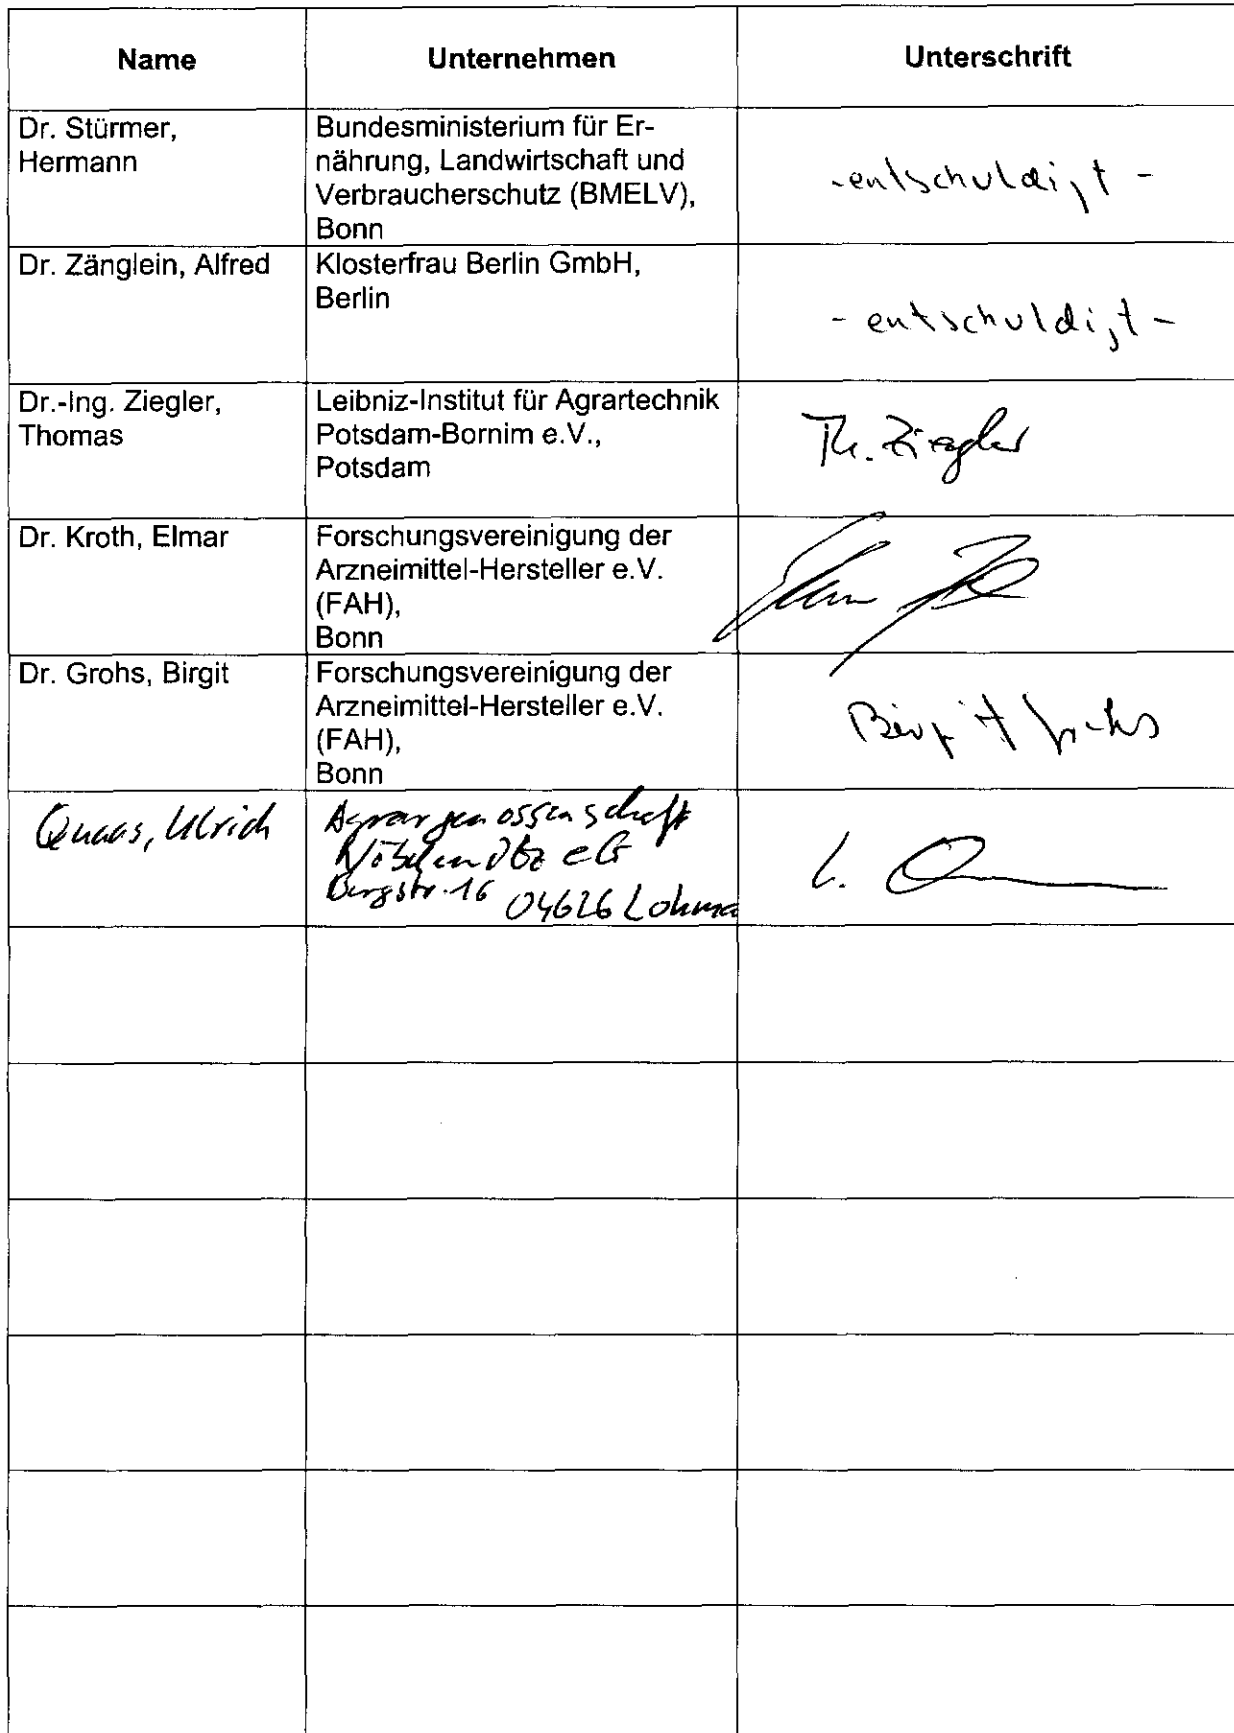 Name Unternehmen Unterschrift
Dr. Stürmer,
Hermann
Bundesministerium für Er-
nährung, Landwirtschaft und
Verbraucherschutz (BMELV),
Bonn
-entschuldigt-
Dr. Zänglein, Alfred
Klosterfrau Berlin GmbH,
Berlin
-entschuldigt-
Dr.-Ing. Ziegler,
Thomas
Leibniz-Institut für Agrartechnik
Potsdam-Bornim e.V.,
Potsdam
Th. Ziegler
Dr. Kroth, Elmar
Forschungsvereinigung der
Arzneimittel-Hersteller e.V.
(FAH),
Bonn
Dr. Grohs, Birgit
Forschungsvereinigung der
Arzneimittel-Hersteller e.V.
(FAH),
Bonn
Birgit Grohs
Quaas, Ulrich
Agrargenossenschaft
eG
Bergstr. 16 04626 Lohma